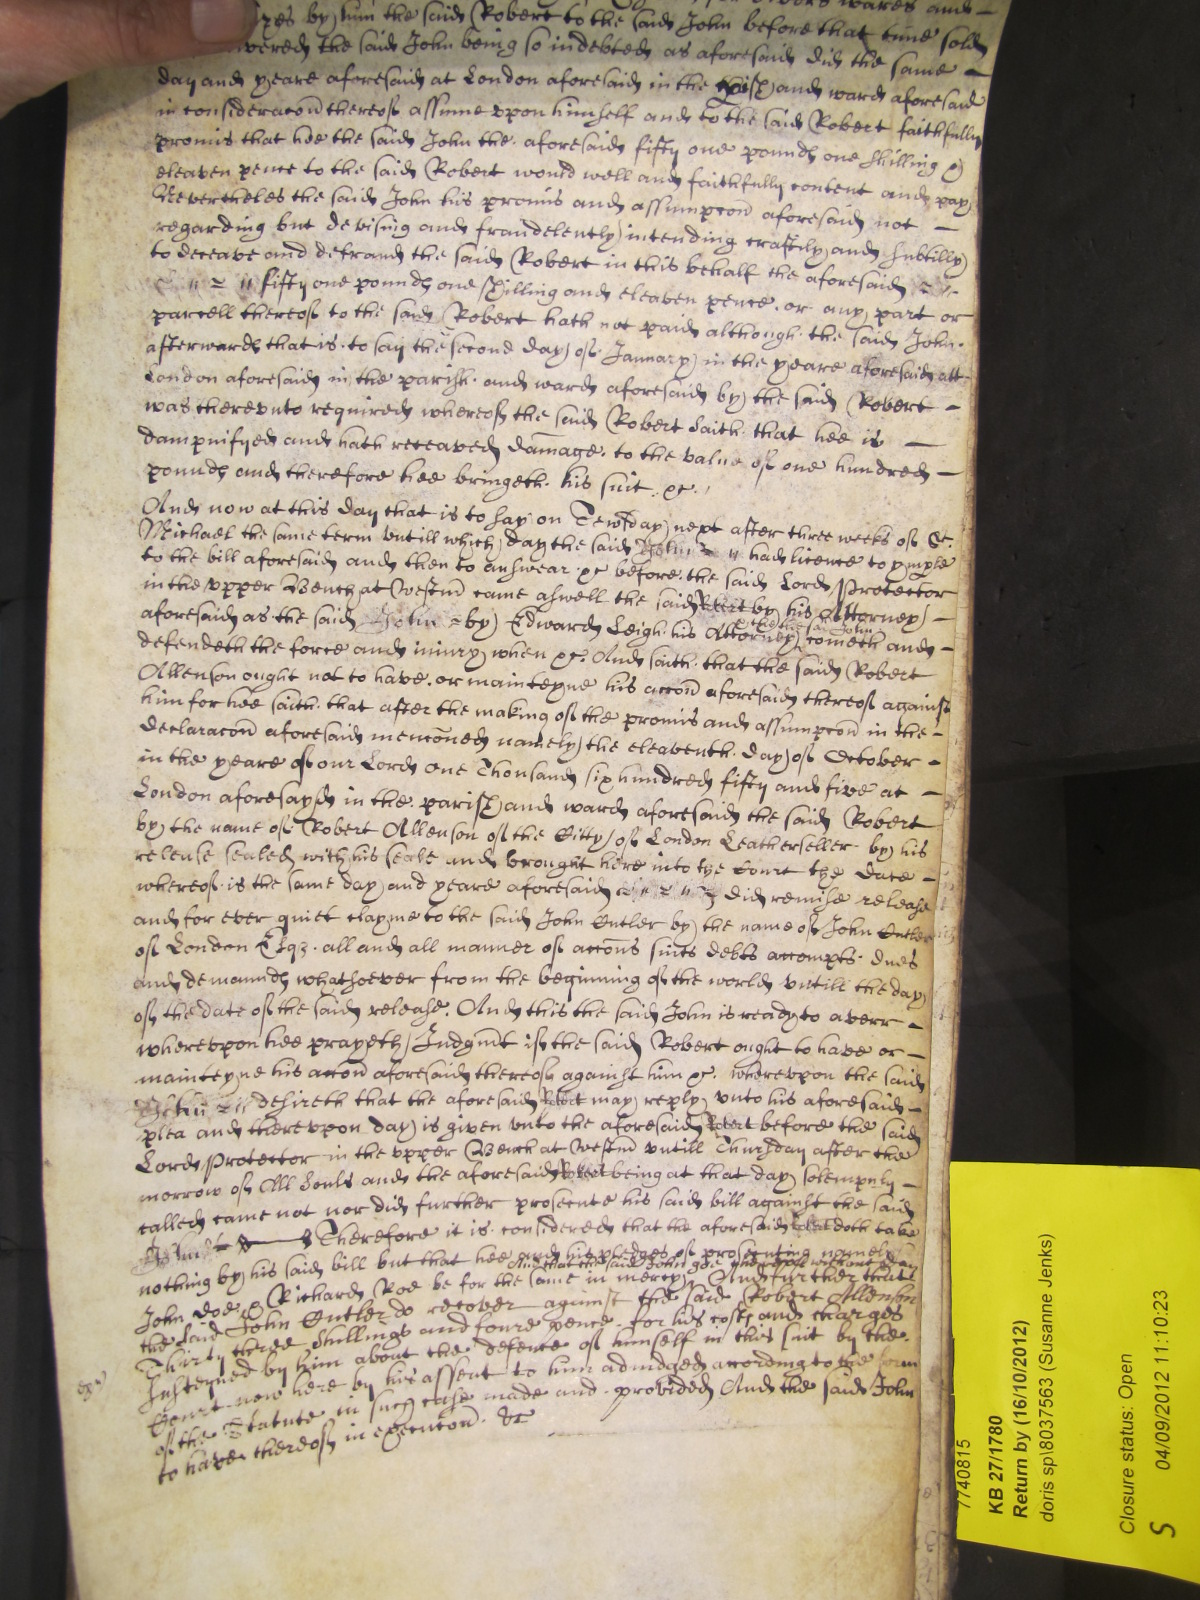 wares and
by him the said Robert to the said John before that time sold
the said John being so indebted as aforesaid did the same
day and yeare aforesaid at London aforesaid in the and ward aforesaid
in consideracon thereof assume upon himself and to the said Robert faithfully
promis that hee the said John the aforesaid fifty one pounds one shilling &
eleaven pence to the said Robert would well and faithfully content and pay
Nevertheles the said John his promis and assumpcon aforesaid not
regarding but devising and fraudelently intending craftily and subtilly
to deceave and defraud the said Robert in this behalf the aforesaid
fifty one pounds one shilling and eleaven pence or any part or
parcell thereof to the said Robert hath not paid although the said John
afterwards that is to say the second day of January in the yeare aforesaid att
London aforesaid in the parish and ward aforesaid by the said Robert
was thereunto required whereof the said Robert saith that hee is
dampnifyed and hath receaved damage to the value of one hundred
pounds and therefore hee bringeth his suit &c.
And now at this day that is to say on Tewsday next after three weeks of St.
Michael the same term untill which day the said John had licence to
to the bill aforesaid and then to answear &c before the said Lord Protector
in the upper Bench at Westm came aswell the said Robert by his Attorney
aforesaid as the said John by Edward Leigh his Attorney & the said John cometh and
defendeth the force and iniury when &c. And saith that the said Robert
Allenson ought not to have or mainteyne his accon aforesaid thereof against
him for hee saith that after the making of the promis and assumpcon in the
declaracon aforesaid menconed namely the eleaventh day of October
in the yeare of our Lord One Thousand six hundred fifty and five at
London aforesayd in the parish and ward aforesaid the said Robert
by the name of Robert Allenson of the Citty of London Leatherseller by his
release sealed with his seale and brought here into the Court the date
whereof is the same day and yeare aforesaid did remise release
and for ever quiet clayme to the said John Cutler by the name of John Cutler
of London Esqr. all and all manner of accons suits debts accompts dues
and demaunds whatsoever from the beginning of the world untill the day
of the date of the said release. And this the said John is ready to averr
whereupon hee prayeth Judgmt if the said Robert ought to have or
mainteyne his accon aforesaid thereof against him &c. whereupon the said
John desireth that the aforesaid Robert may reply unto his aforesaid
plea and thereupon day is given unto the aforesaid Robert before the said
Lord Protector in the upper Bench at Westm untill Thursday after the
morrow of All Souls and the aforesaid Robert being at that day solempnly
called came not nor did further prosecute his said bill against the said
John Therefore it is considered that the aforesaid Robert doth take
nothing by his said bill but that hee and his pledges of prosecuting namely
and that the said John goe thereof without day
John Doe & Richard Roe be for the same in mercy. And further that
the said John Cutler do recover against the said Robert Allenson
Thirty three shillings and foure pence for his costs and charges
susteyned by him about the defence of himself in this suit by the
Court now here by his assent to him adiudged according to the form
of the Statute in such case made and provided And the said John
to have thereof in execucon &c
7740815
KB 27/1780
Return by (16/10/2012)
doris sp\80375563 (Susanne Jenks)
Closure status: Open
04/09/2012 11:10:23
S